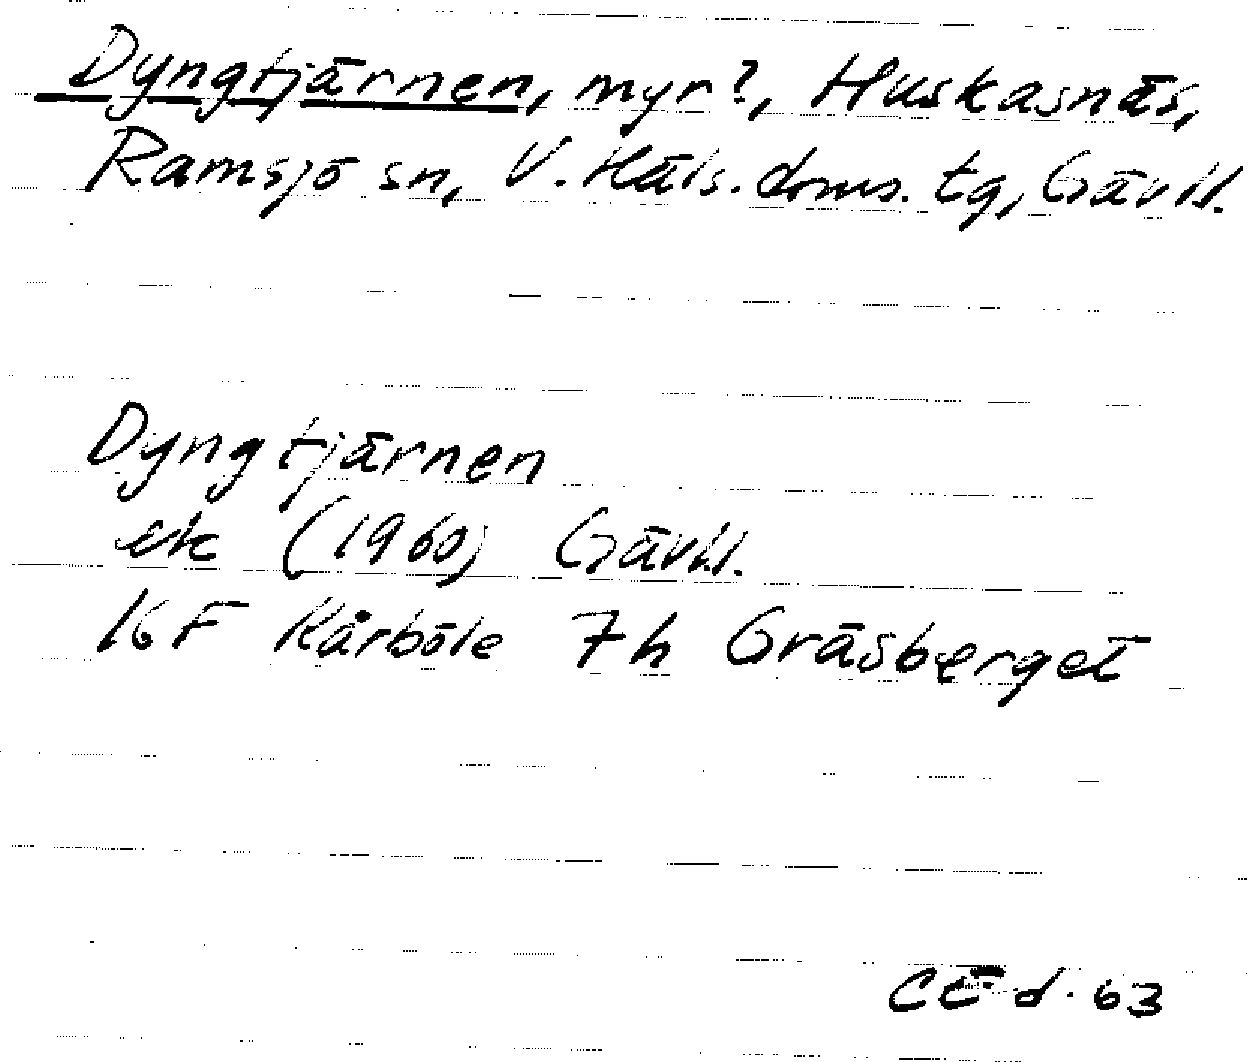 Dyngtjärnen, myr?, Huskasnäs,
Ramsjö sn, V. Häls. doms. tg, Gävl.l.
Dyngtjärnen
ek (1960) Gävl.l.
16 F Kårböle 7 h Gräsberget
d. 63